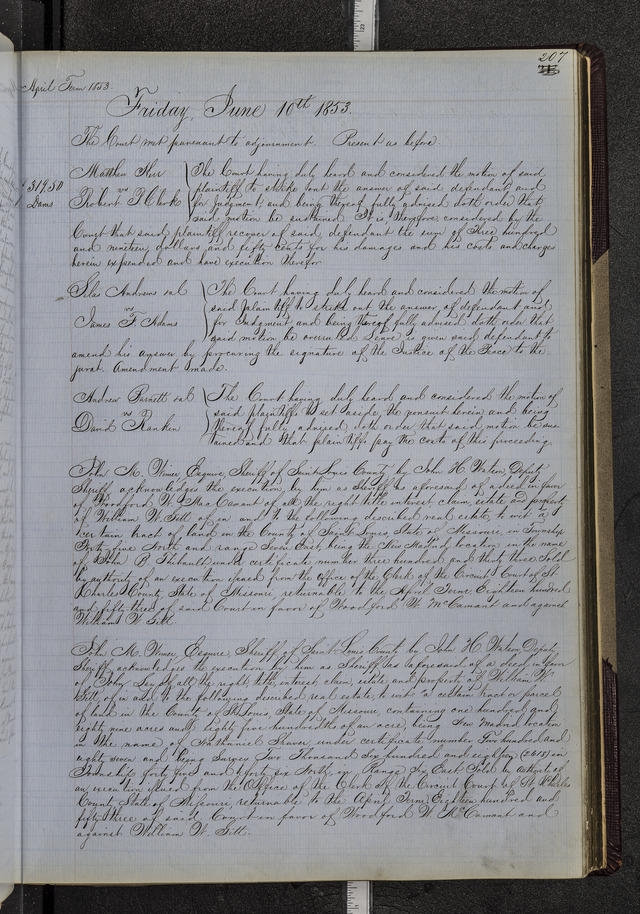 207
April Term 1853
Friday, June 10th 1853.
The Court met pursuant to adjournment. Present as before.
Matthew Kerr
vs
Robert P. Clark
319.50
Dams
The Court having duly heard and considered the motion of said
plaintiff to strike out the answer of said defendant and
for judgment, and being thereof fully advised doth order that
said motion be sustained. It is therefore considered by the
Court that said plaintiff recover of said defendant the sum of Three hundred
and nineteen dollars and fifty cents for his damages and his costs and charges
herein expended and have execution therefor
Silas Andrews et al
vs
James F. Adams
The Court having duly heard and considered the motion of
said plaintiff to strike out the answer of defendant and
for Judgment and being thereof fully advised doth order that
said motion be overruled Leave is given said defendant to
amend his answer by procuring the signature of the Justice of the Peace to the
jurat. Amendment made.
Andrew Burnett et al
vs
David Rankin
The Court having duly heard and considered the motion of
said plaintiffs to set aside the nonsuit herein and being
thereof fully advised doth order that said motion be sus-
tained and that plaintiffs pay the costs of this proceeding.
John M. Wimer Esquire, Sheriff of Saint Louis County, by John H. Watson, Deputy
Sheriff acknowledges the execution by him as Sheriff as aforesaid of a deed in favor
of Woodford W. MacCamant of all the right title interest claim, estate and property
of William W. Gitt of in and to the following described real estate, to wit a
certain tract of land in the County of Saint Louis, State of Missouri in Township
Forty five North and range Seven East, being the New Madrid location in the name
of John B. Thibault under certificate number three hundred and thirty three Sold
by authority of an execution issued from the office of the Clerk of the Circuit Court of St
Charles County, State of Missouri, returnable to the April Term Eighteen hundred
and fifty three of said Court in favor of Woodford W. McCamant and against
William W. Gitt.
John M. Wimer, Esquire, Sheriff of Saint Louis County by John H. Watson, Deputy
Sheriff acknowledges the execution by him as Sheriff as aforesaid of a deed in favor
of John of all the right, title interest claim, estate and property of William W.
Gitt, of in and to the following described real estate, to wit a certain tract or parcel
of land in the County of St. Louis, State of Missouri containing one hundred and
eighty nine acres and eighty five hundredths of an acre, being New Madrid location
in the name of Nathaniel Shaver under certificate number Two hundred and
eighty seven and being Survey Two Thousand Six hundred and eighteen (2618) in
Township forty five and forty six North, on Range Six East Sold by authority of
an execution issued from the Office of the Clerk of the Circuit Court of St. Charles
County State of Missouri, returnable to the April Term, Eighteen hundred and
fifty three of said Court in favor of Woodford W. McCamant and
against William W. Gitt.